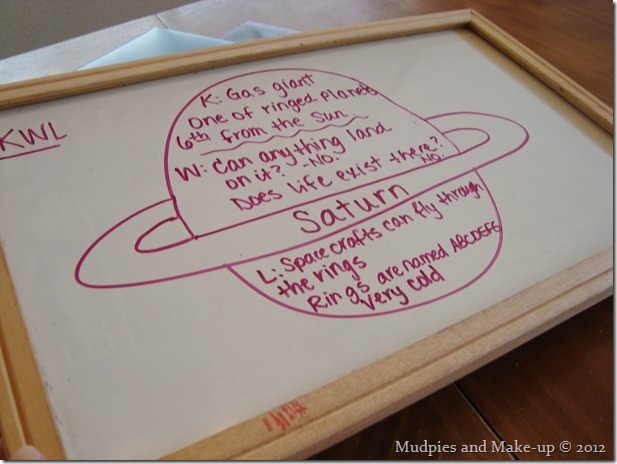 KWL
K: Gas giant
One of ringed planets
6th from the sun
W: Can anything land
on it? -NO.
Does life exist there?
NO.
Saturn
L: Space crafts can fly through
the rings
Rings are named ABCDEFG
Very cold
Mudpies and Make-up © 2012